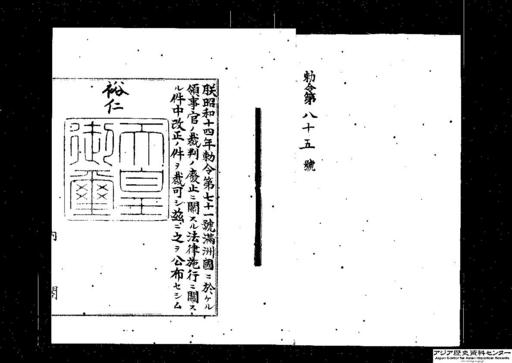 勅令第八十五號
朕昭和十四年勅令第七十一號滿洲國ニ於ケル
領事官ノ裁判ノ廢止ニ關スル法律施行ニ關ス
ル件中改正ノ件ヲ裁可シ茲ニ之ヲ公布セシム
裕仁
天皇
御璽
内閣
アジア歴史資料センター
Japan Center for Asian Historical Records